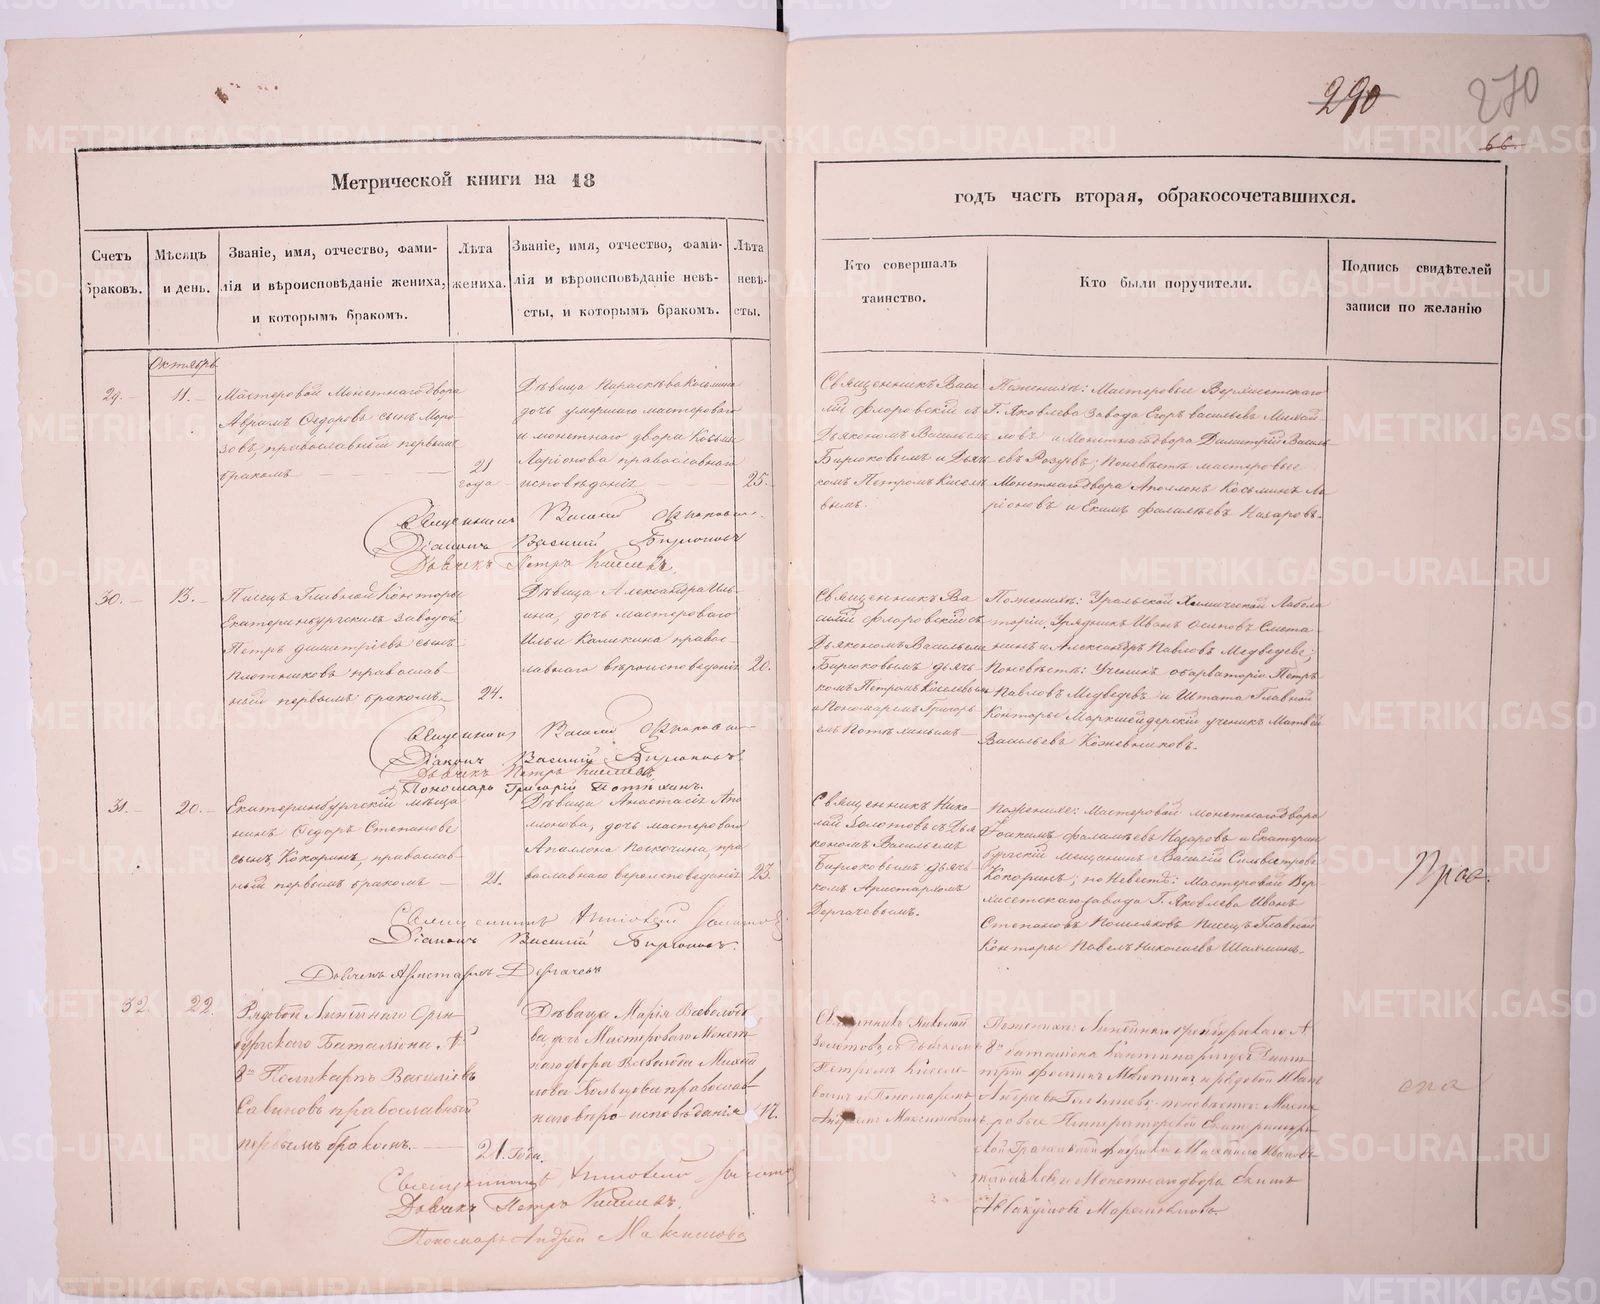 290
270
66.
Метрической книги на 18
годъ часть вторая, обракосочетавшихся.
Счетъ браковъ.
Мѣсяцъ и день.
Званіе, имя, отчество, фами-
лія и вѣроисповѣданіе жениха,
и которымъ бракомъ.
Лѣта
жениха.
Званіе, имя, отчество, фами-
лія и вѣроисповѣданіе невѣ-
сты, и которымъ бракомъ.
Лѣта
невѣ-
сты.
Кто совершалъ
таинство.
Кто были поручители.
Подпись свидѣтелей
записи по желанію
Октябрь
29.
11.
Мастеровой Монетнаго двора
Аврамъ Ѳедоровъ сынъ Моро-
зовъ, православный первымъ
бракомъ
21
года
Дѣвица Параскѣва Косьмина
дочь умершаго мастероваго
монетнаго двора Косьмы
Ларіонова православнаго
исповѣданія
25.
Священникъ Васи-
лій Флоровскій съ
Дьякономъ Васильемъ
Бирюковымъ и Дьяч-
комъ Петромъ Киселе-
вымъ.
По женихѣ: Мастеровые Верхисетскаго
Г. Яковлева завода Егоръ Васильевъ
и Монетнаго двора Димитрій Василь-
евъ; по невѣстѣ мастеровые
Монетнаго двора Аполлонъ Косьминъ Ла-
ріоновъ и Екимъ Фалалѣевъ Назаровъ.
Священникъ Василій Флоровскій
Діаконъ Василій Бирюковъ
Дьячекъ Петръ Киселевъ.
30.
13.
Писецъ Главной Конторы
Екатеринбургскихъ заводовъ
Петръ Димитріевъ сынъ
Плотниковъ православ-
ный первымъ бракомъ.
24.
Дѣвица Александра Иль-
ина, дочь мастероваго
Ильи Калякина правос-
лавнаго вѣроисповеданія
20.
Священникъ Ва-
силій Флоровскій съ
Дьякономъ Васильемъ
Бирюковымъ дьяч-
комъ Петромъ Киселевымъ
и Пономаремъ Григорь-
емъ Потѣхинымъ
По женихѣ: Уральской Химической Лабора-
торіи Урядникъ Иванъ Осиповъ Смета-
нинъ и Александръ Павловъ Медведевъ;
По невѣстѣ: Ученикъ обсерваторіи Петръ
Павловъ Медведевъ и Штата Главной
Конторы Маркшейдерскій ученикъ Матвей
Васильевъ Кожевниковъ.
Священникъ Василій Флоровскій
Діаконъ Василій Бирюковъ
Дьячекъ Петръ Киселевъ
Пономарь Григорій Потѣхинъ.
31.
20.
Екатеринбургскій мѣща-
нинъ Ѳедоръ Степановъ
сынъ Кокоринъ, православ-
ный первымъ бракомъ
21.
Дѣвица Анастасія Апо-
лонова, дочь мастероваго
Аполлона Поскочина, пра-
вославнаго вероисповеданія
23.
Священникъ Нико-
лай Золотовъ съ Дья-
кономъ Васильемъ
Бирюковымъ дьяч-
комъ Аристархомъ
Дергачевымъ.
По женихе: Мастеровой монетнаго двора
Іоакимъ Фалалѣевъ Назаровъ и Екатерин-
бургскій мещанинъ Василій Сильвестровъ
Кокоринъ; по Невестѣ: Мастеровой Вер-
хисетскаго завода Г. Яковлева Иванъ
Степановъ Писецъ Главной
Конторы Павелъ Николаевъ
Священникъ Николай Золотовъ
Діаконъ Василій Бирюковъ.
Дьячекъ Аристархъ Дергачевъ
32.
22.
Рядовой Линѣйнаго Орен-
бургскаго Баталіона №
8го Поликарпъ Василіевъ
Савиновъ православный
первымъ бракомъ.
21. года.
Дѣвица Марія Всеволодо-
ва дочь Мастероваго Монет-
наго двора Всеволода Михай-
лова Кольцова православ-
наго вѣроисповѣданія
17.
Священникъ Николай
Золотовъ съ дьячкомъ
Петромъ Киселе-
вымъ и Пономаремъ
Андреемъ Максимовымъ
По женихѣ: Линѣйнаго Оренбургскаго №
8го баталіона
и рядовой Иванъ
по невѣстѣ: Масте-
ровые Императорской Екатеринбург-
ской Гранильной фабрики Михайло Ивановъ
и Монетнаго двора
Священникъ Николай Золотовъ
Дьячекъ Петръ Киселевъ.
Пономарь Андрей Максимовъ
METRIKI.GASO-URAL.RU